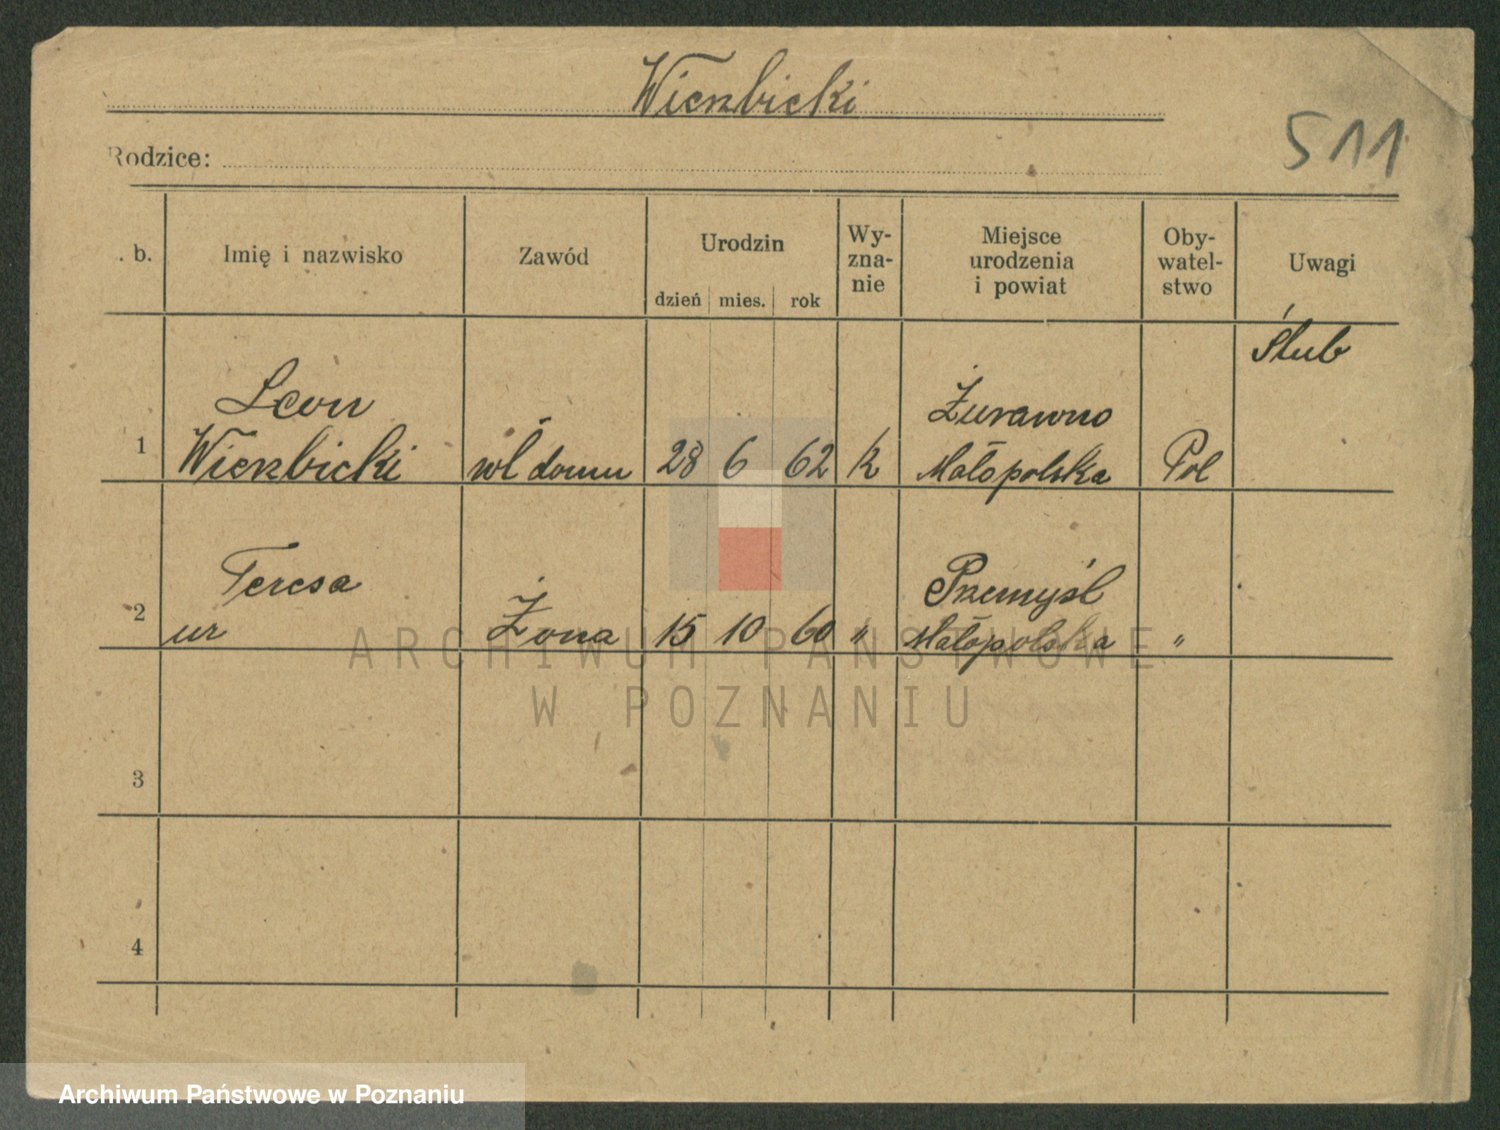 Wierzbicki
Rodzice:
511
. b.
Imię i nazwisko
Zawód
Urodzin
dzień mies. rok
Wy-
zna-
nie
Miejsce
urodzenia
i powiat
Oby-
watel-
stwo
Uwagi
Ślub
1
Leon
Wierzbicki
wł domu
28 6 62
k
Żurawno
Małopolska
Pol
2
Teresa
ur
Żona
15 10 60
"
Przemyśl
Małopolska
"
ARCHIWUM PAŃSTWOWE
W POZNANIU
3
4
Archiwum Państwowe w Poznaniu